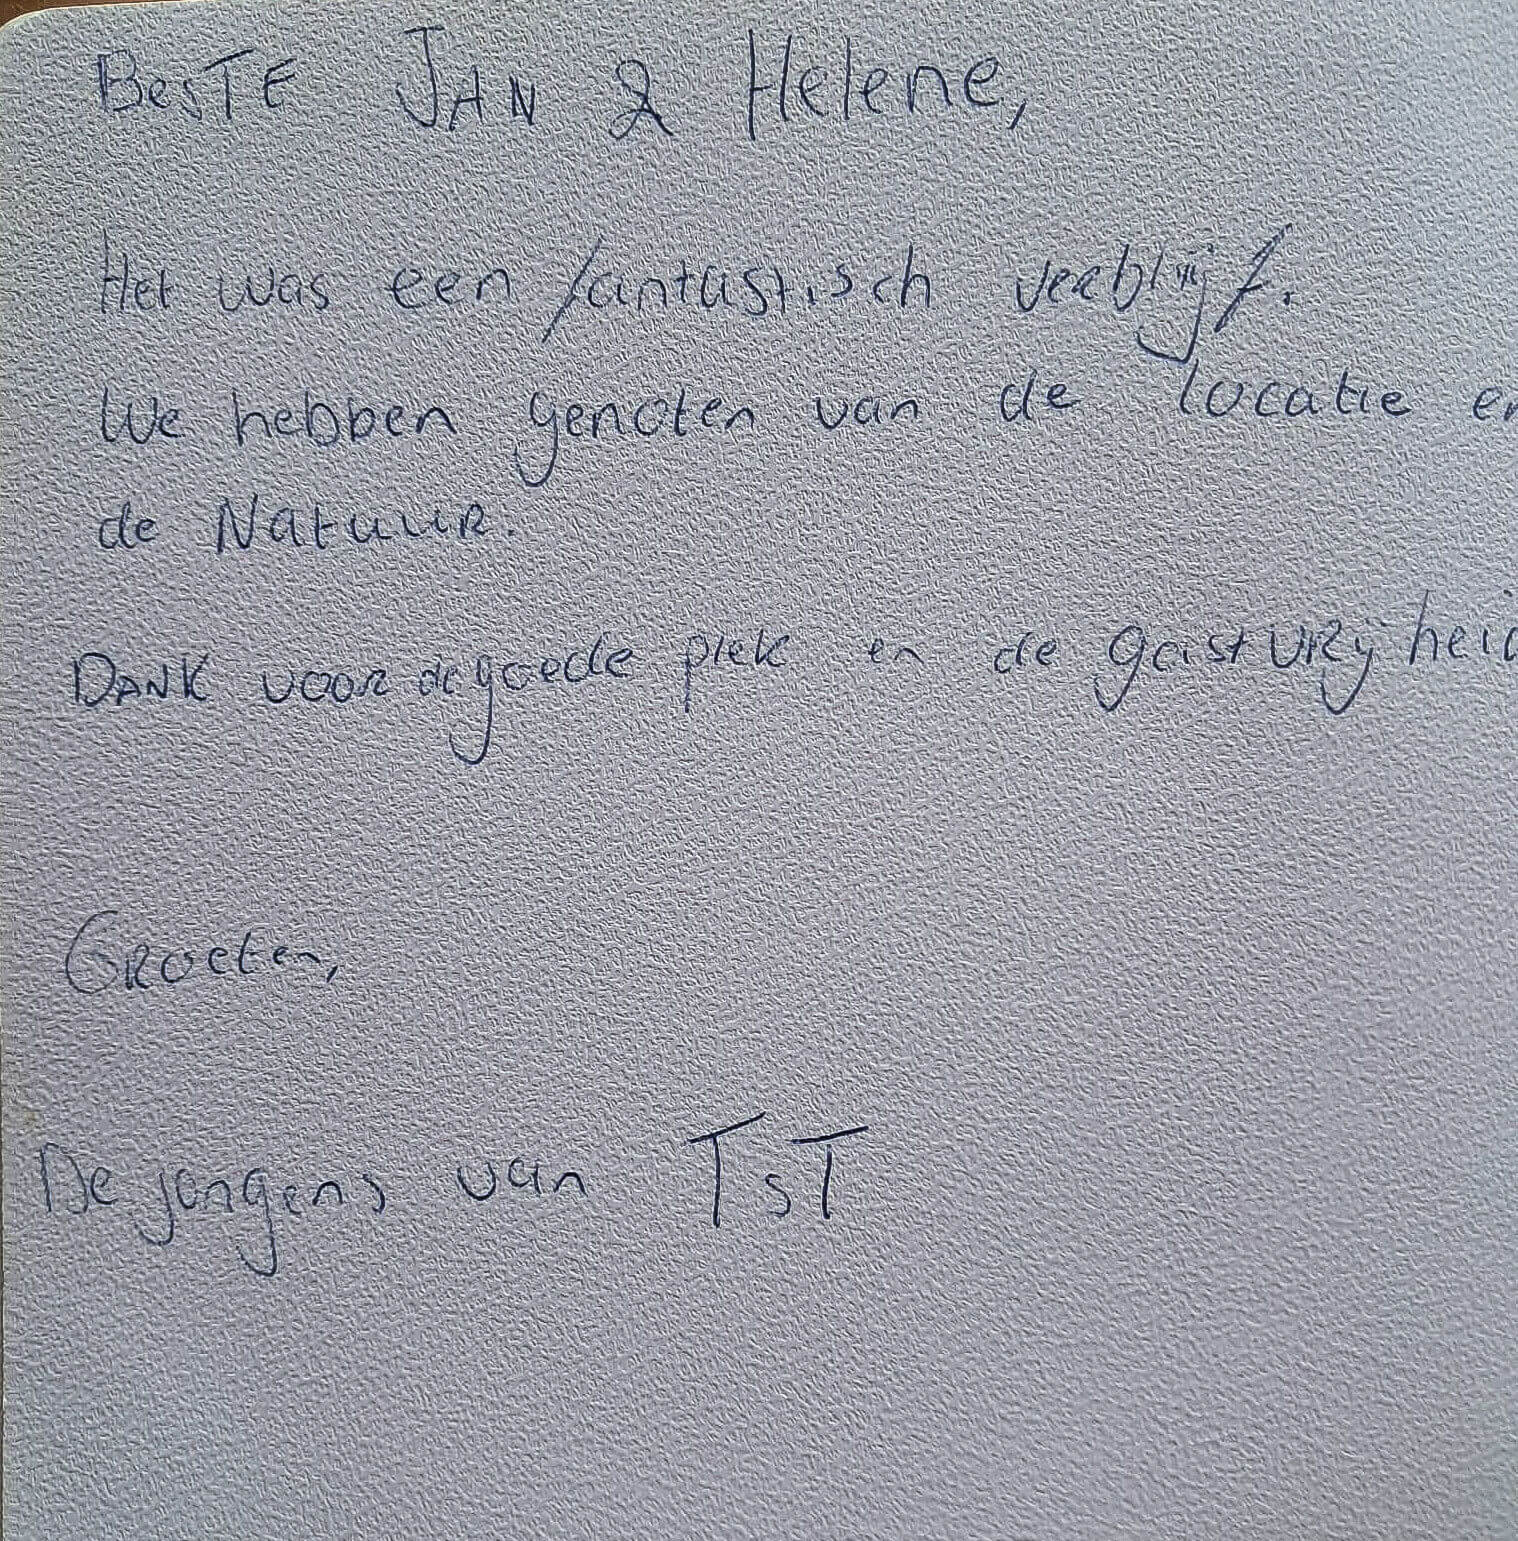 Beste Jan & Helene,
Het was een fantastisch verblijf.
We hebben genoten van de locatie en
de Natuur.
Dank voor de goede plek en de gastvrijheid
Groeten,
De jongens van TsT